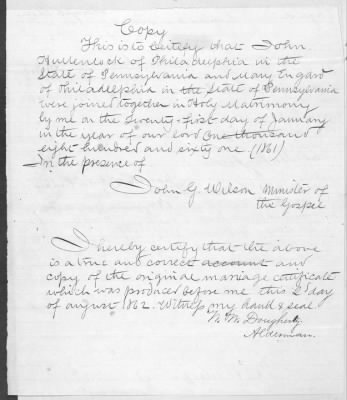 Copy
This is to certify that John
Hallenlock of Philadelphia in the
State of Pennsylvania and Mary Lugard
of Philadelphia in the State of Pennsylvania
were joined together in Holy Matrimony
by me on the Twenty-first day of January
in the year of our lord One thousand
eight hundred and sixty one. (1861)
In the presence of
John G. Wilson Minister of
the Gospel
I hereby certify that the above
is a true and correct account and
copy of the original marriage certificate
which was produced before me this 2 day
of august 1862. Witness my hand & seal
N. M. Dougherty
Alderman.